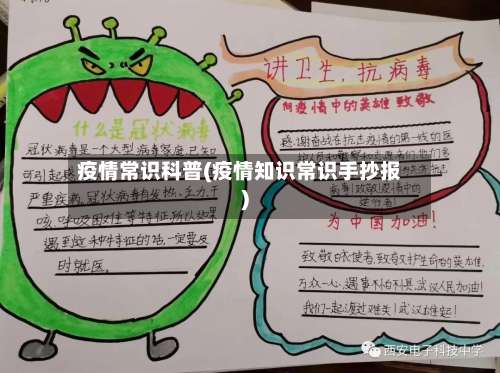 什么是冠状病毒
冠状病毒是一个大型病毒家庭,已知
可引起感
疫情常识科普(疫情知识常识手抄报
)
严重疾病,冠状病毒有发热、乏力、干
咳、呼吸困难等特征,所以如果
遇到这种特征的话,一定要及
时就医。
讲卫生,抗病毒
向疫情中的英雄致敬
感谢奋战在抗击疫情的第一线的医
为中国加油!
致敬白衣使者,致敬守护生命的英雄,
万众一心,遇事不怕不惧,武汉人民加油!
我们一起渡过难关!武汉雄起!
西安电子科技中学